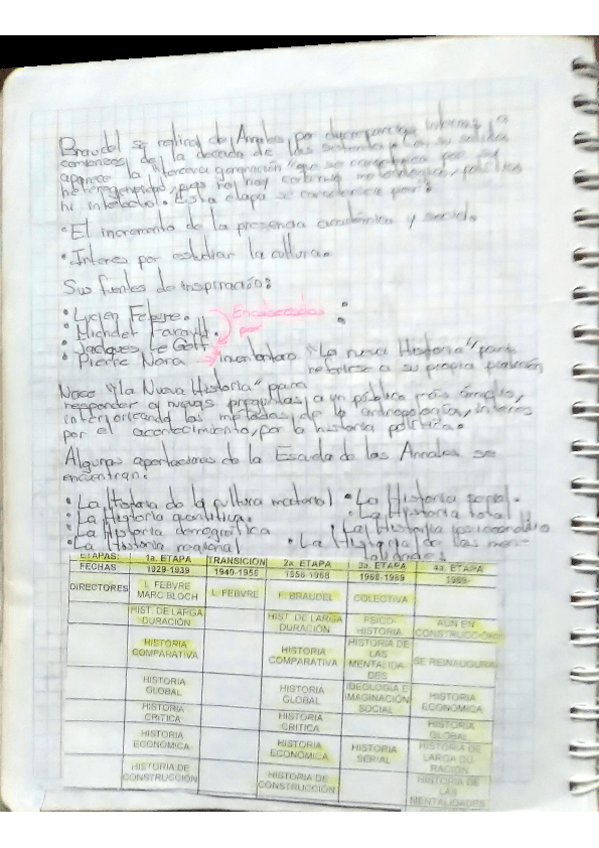 Braudel se retira de Annales por discrepancias internas, a
comienzos de la decada de los setenta, con su salida
aparece la "tercera generación" que se caracteriza por su
heterogeneidad, pues no hay
ni intelectual. Esta etapa se caracteriza por:
• El incremento de la presencia académica y social.
• Interes por estudiar la cultura.
Sus fuentes de inspiración:
• Lucien Febvre.
• Michael Foucault.
• Jacques Le Goff
• Pierre Nora
Encabezados
por
inventaron "La nueva Historia" para
referirse a su propia posición
Nace "la Nueva Historia" para
responder a nuevas preguntas, a un público más amplio,
interiorizando los metodos de la antropología, interes
por el acontecimiento, por la historia política.
Algunas aportaciones de la Escuela de los Annales se
encuentran.
• La Historia de la cultura material • La Historia social.
• La Historia cuantitativa. • La Historia total
• La Historia demografica • La Historia
• La Historia regional • La Historia de las men-
talidades
ETAPAS: 1a. ETAPA TRANSICIÓN 2a. ETAPA 3a. ETAPA 4a. ETAPA
FECHAS 1929-1939 1940-1956 1956-1968 1968-1989 1989-
DIRECTORES L. FEBVRE MARC BLOCH L. FEBVRE F. BRAUDEL COLECTIVA
HIST. DE LARGA DURACIÓN HIST. DE LARGA DURACIÓN PSICO-HISTORIA AUN EN CONSTRUCCIÓN
HISTORIA COMPARATIVA HISTORIA COMPARATIVA HISTORIA DE LAS MENTALIDA-DES SE REINAUGURA
HISTORIA GLOBAL HISTORIA GLOBAL IDEOLOGIA E IMAGINACIÓN SOCIAL HISTORIA ECONOMICA
HISTORIA CRITICA HISTORIA CRITICA HISTORIA GLOBAL
HISTORIA ECONOMICA HISTORIA ECONOMICA HISTORIA SERIAL HISTORIA DE LARGA DU-RACIÓN
HISTORIA DE CONSTRUCCIÓN HISTORIA DE CONSTRUCCIÓN HISTORIA DE LAS MENTALIDADES